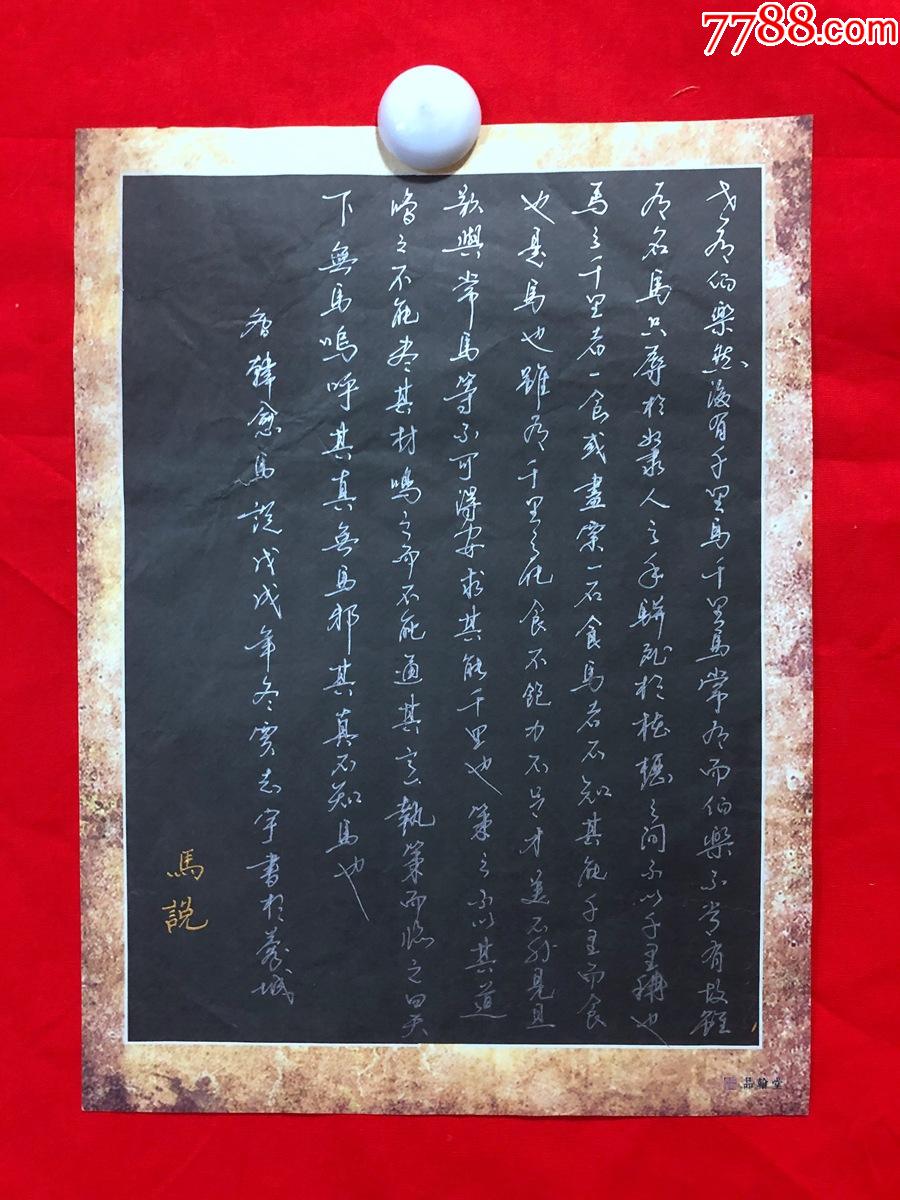 7788.com
世有伯樂然後有千里馬千里馬常有而伯樂不常有故雖
有名馬只辱於隸人之手駢死於槽櫪之間不以千里稱也
馬之千里者一食或盡粟一石食馬者不知其能千里而食
也是馬也雖有千里之能食不飽力不足才美不外見且
欲與常馬等不可得安求其能千里也策之不以其道
食之不能盡其材鳴之而不能通其意執策而臨之曰天
下無馬嗚呼其真無馬邪其真不知馬也
韓愈馬說戊戌年冬志宇書於城
馬說
品翰堂